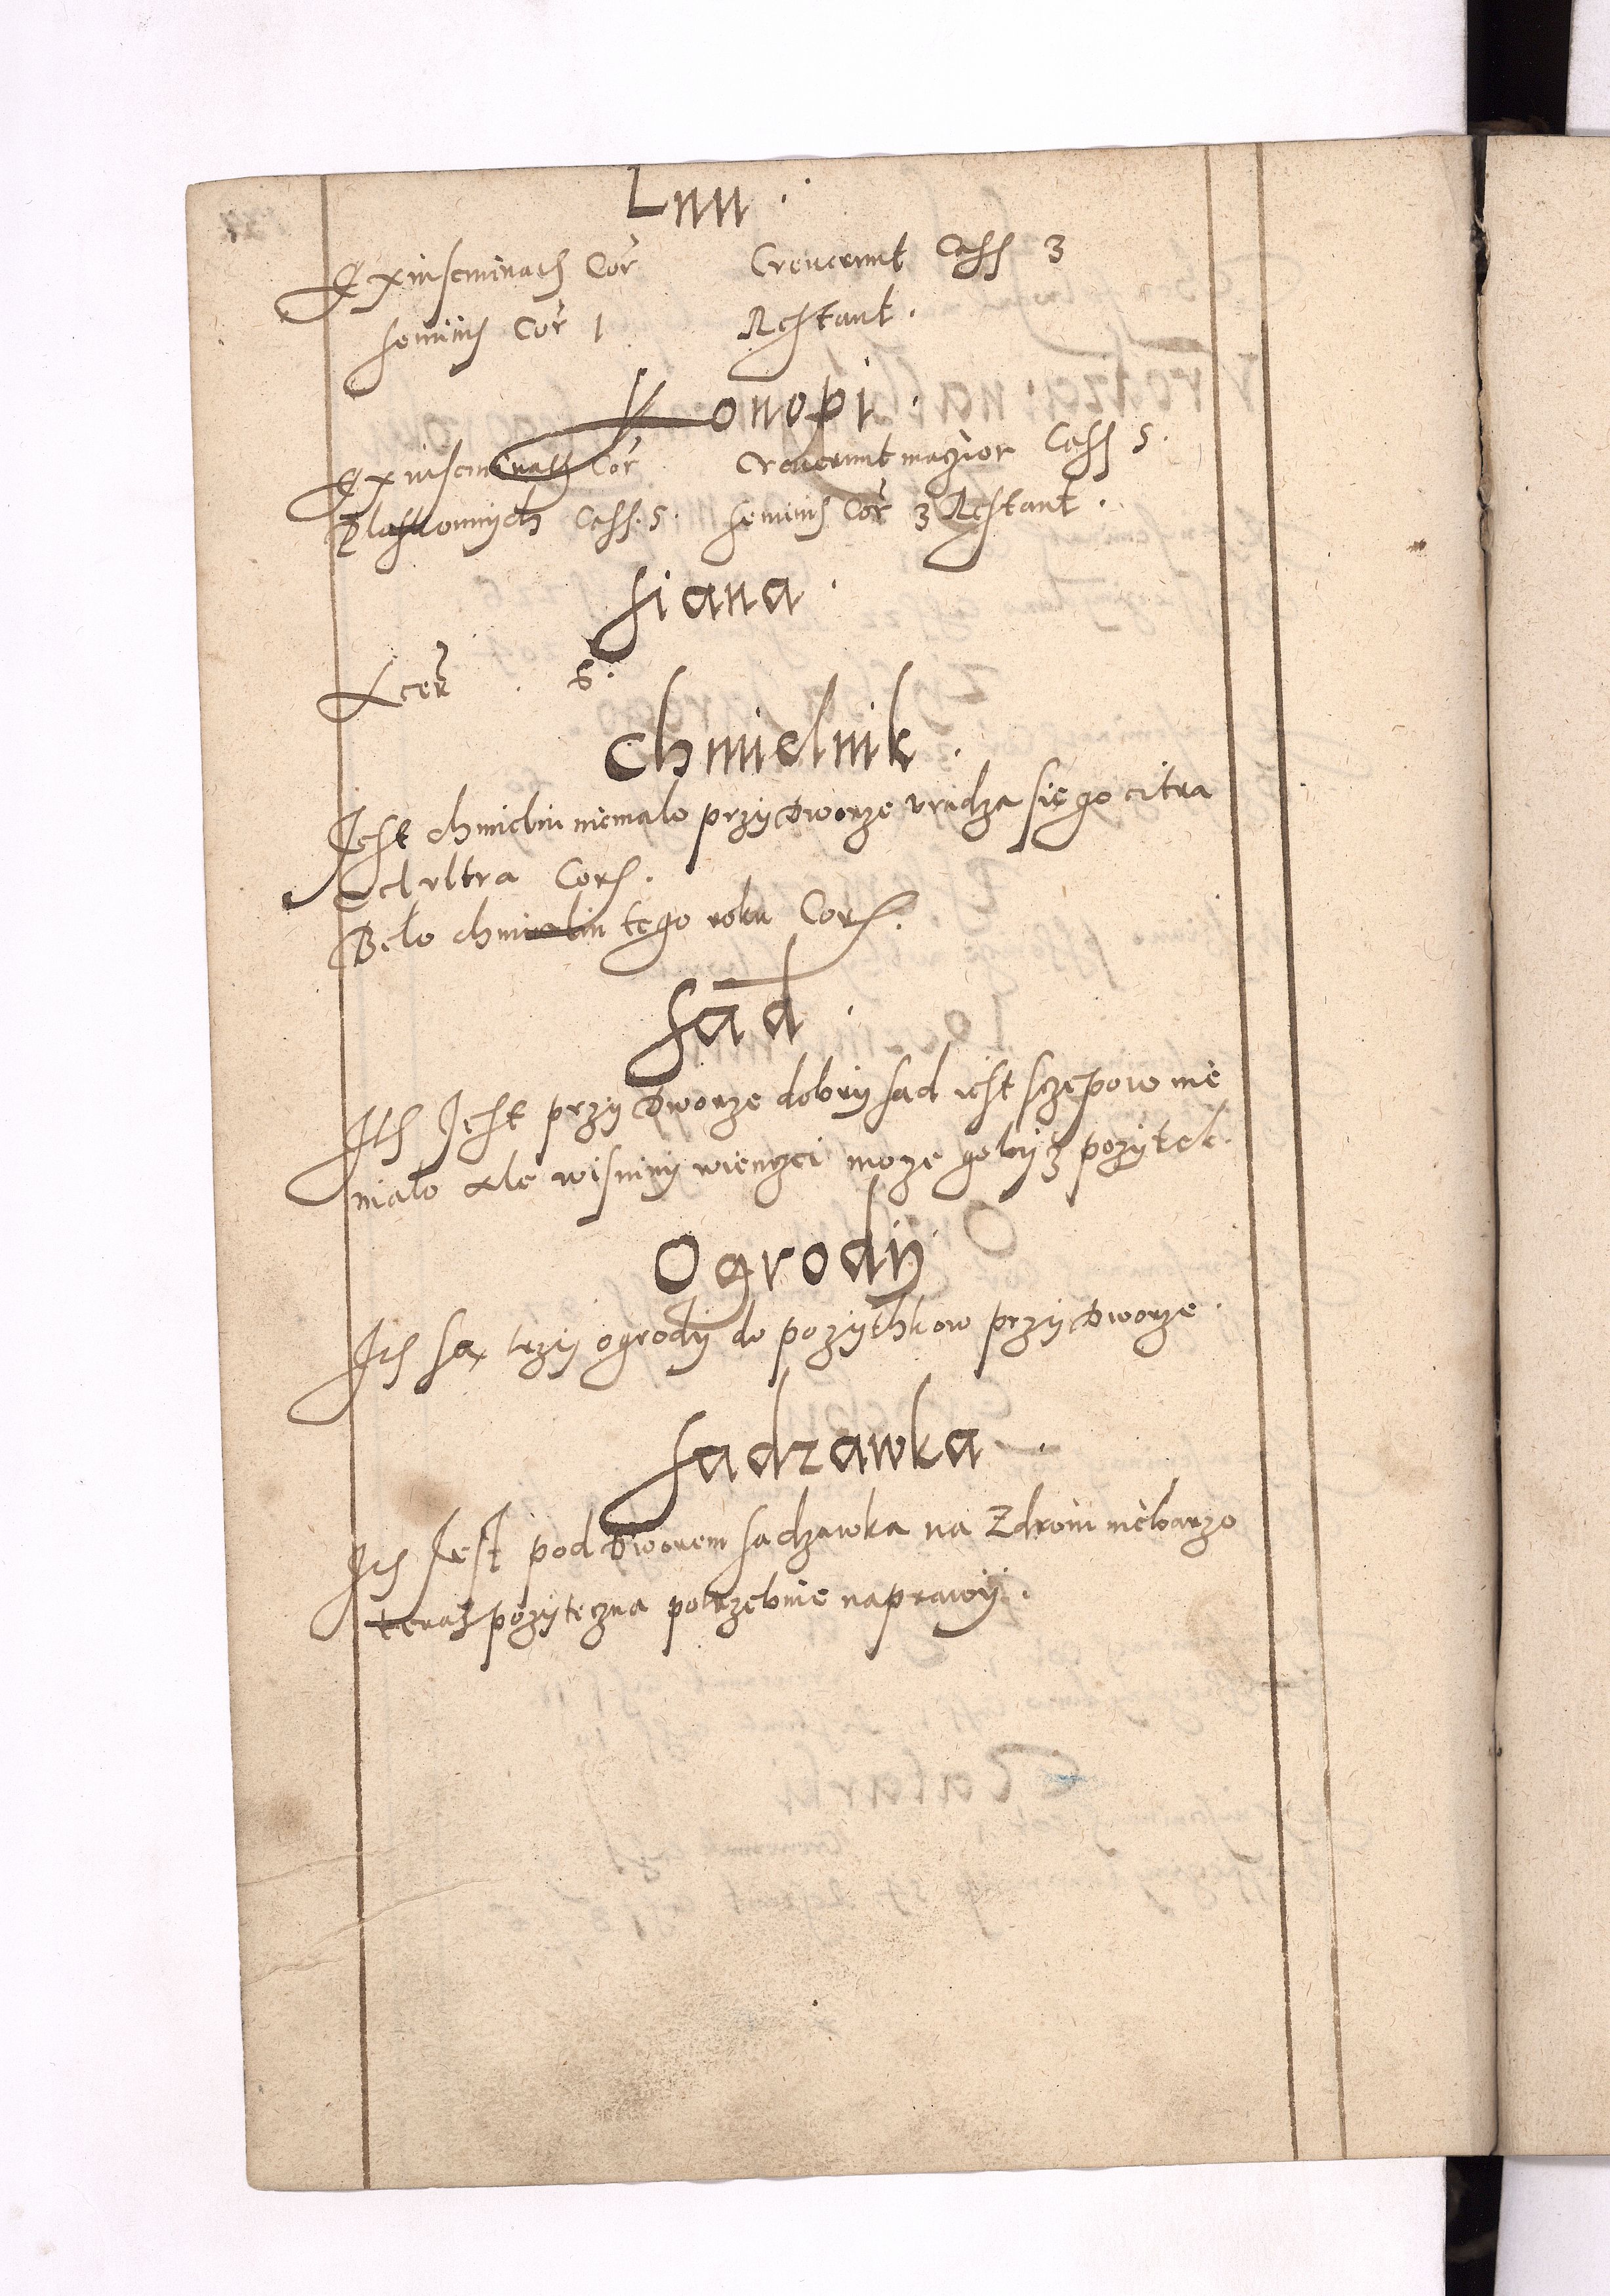 Lnu.
Exinseminatis Cor Creuerunt Cass 3
seminis Cor 1 Restant.
Konopi.
Exinseminatis Cor Creuerunt maÿior Cass 5.
Plaskonnych Cass. 5. seminis Cor 3 Restant.
siana.
Acer. 6.
Chmielnik.
Jest chmieliu niemało przÿ Dworze vradza sie go citra
vel vltra Cors.
Beło chmieliu tego roku Cors.
sad.
Its Jest przÿ Dworze dobrÿ sad iest sczepow nie
mało Ale wisninÿ wienczei moze go bÿdz pozÿtek.
Ogrodÿ
Its sa trzÿ ogrodÿ do pozÿthkow przÿ Dworze.
sadzawka.
Its Jest pod Dworem sadzawka na Zdroiu niebarzo
teras pozÿteczna potrzebnie naprawÿ.